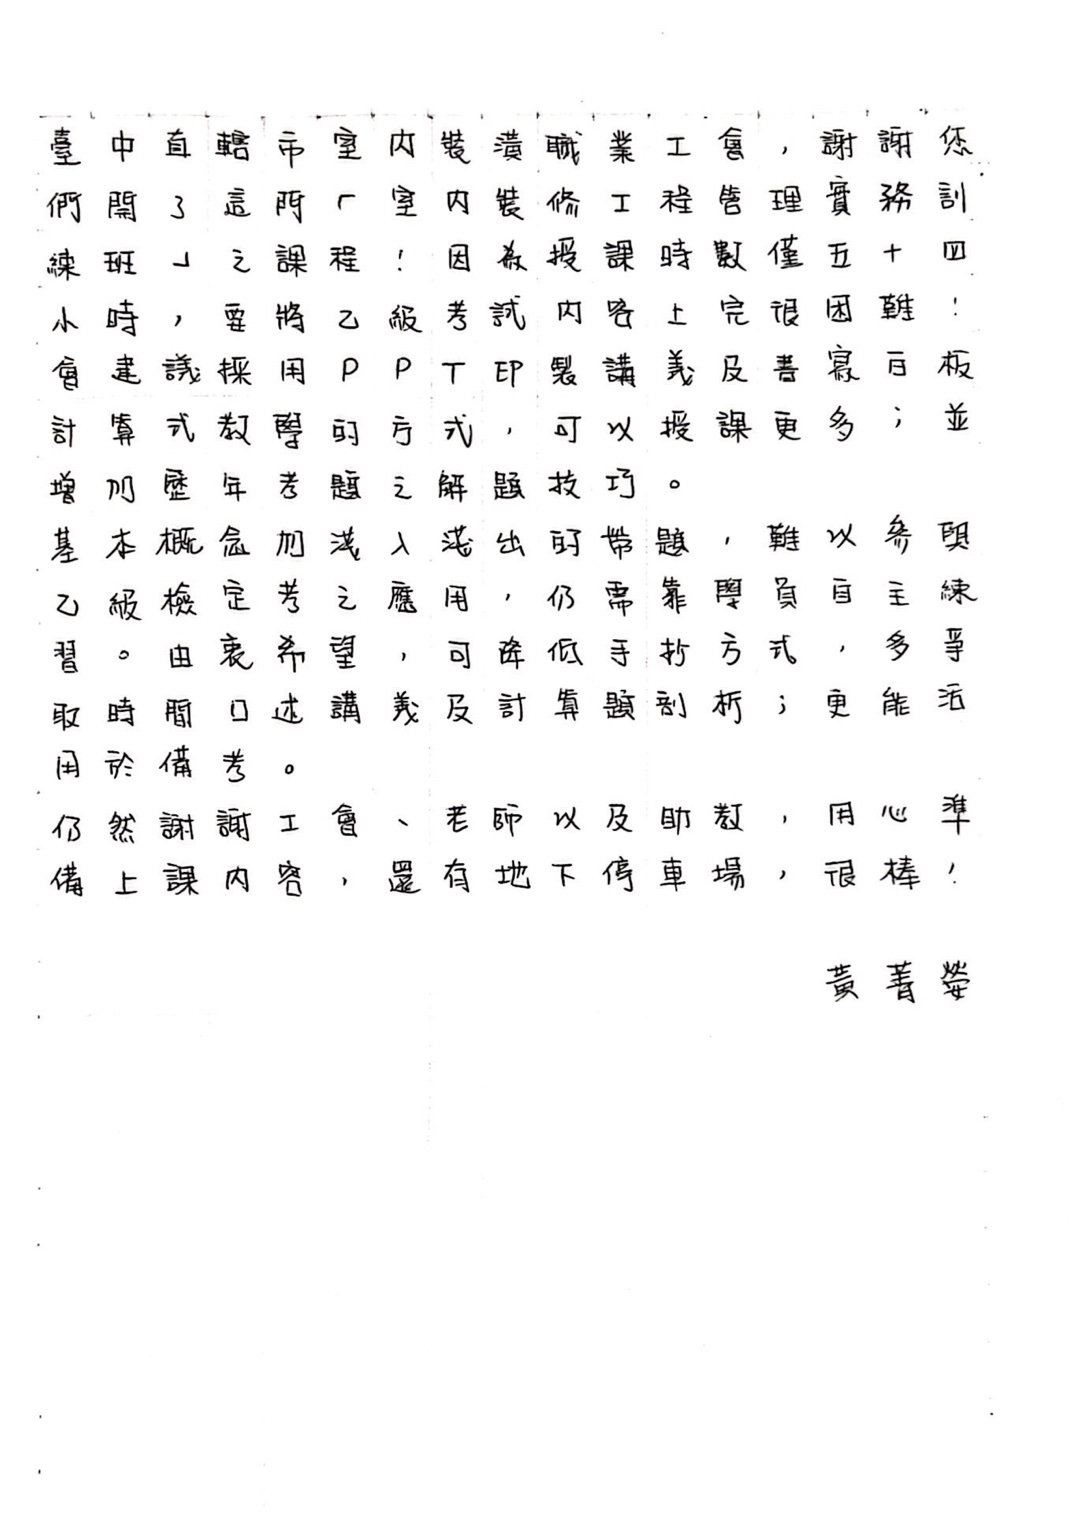 臺中直轄市室內裝潢職業工會，謝謝您
們開了這所「室內裝修工程管理實務訓
練班」之課程！因為授課時數僅五十四
小時，要將乙級考試內容上完很困難！
會建議採用PPT印製講義及書寫白板
計算式教學的方式，可以授課更多；並
增加歷年考題之解題技巧。
基本概念加淺入淺出的帶題，難以參與
乙級檢定考之應用，仍需靠學員自主練
習。由衷希望，可降低手抄方式，多爭
取時間口述講義及計算題剖析；更能活
用於備考。
仍然謝謝工會、老師以及助教，用心準
備上課內容，還有地下停車場，很棒！
黃菁